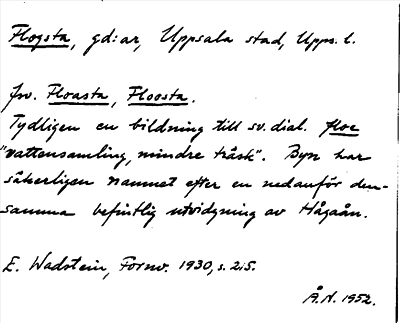 Flogsta, gd:ar, Uppsala stad, Upps. l.
Jw. Floasta, Floosta.
Tydligen en bildning till sv. dial. floe
"vattensamling, mindre träsk". Byn har
säkerligen namnet efter en nedanför den-
samma befintlig utvidgning av Hågaån.
E. Wadstein, Fornv. 1930, s. 215.
Å.N. 1952.